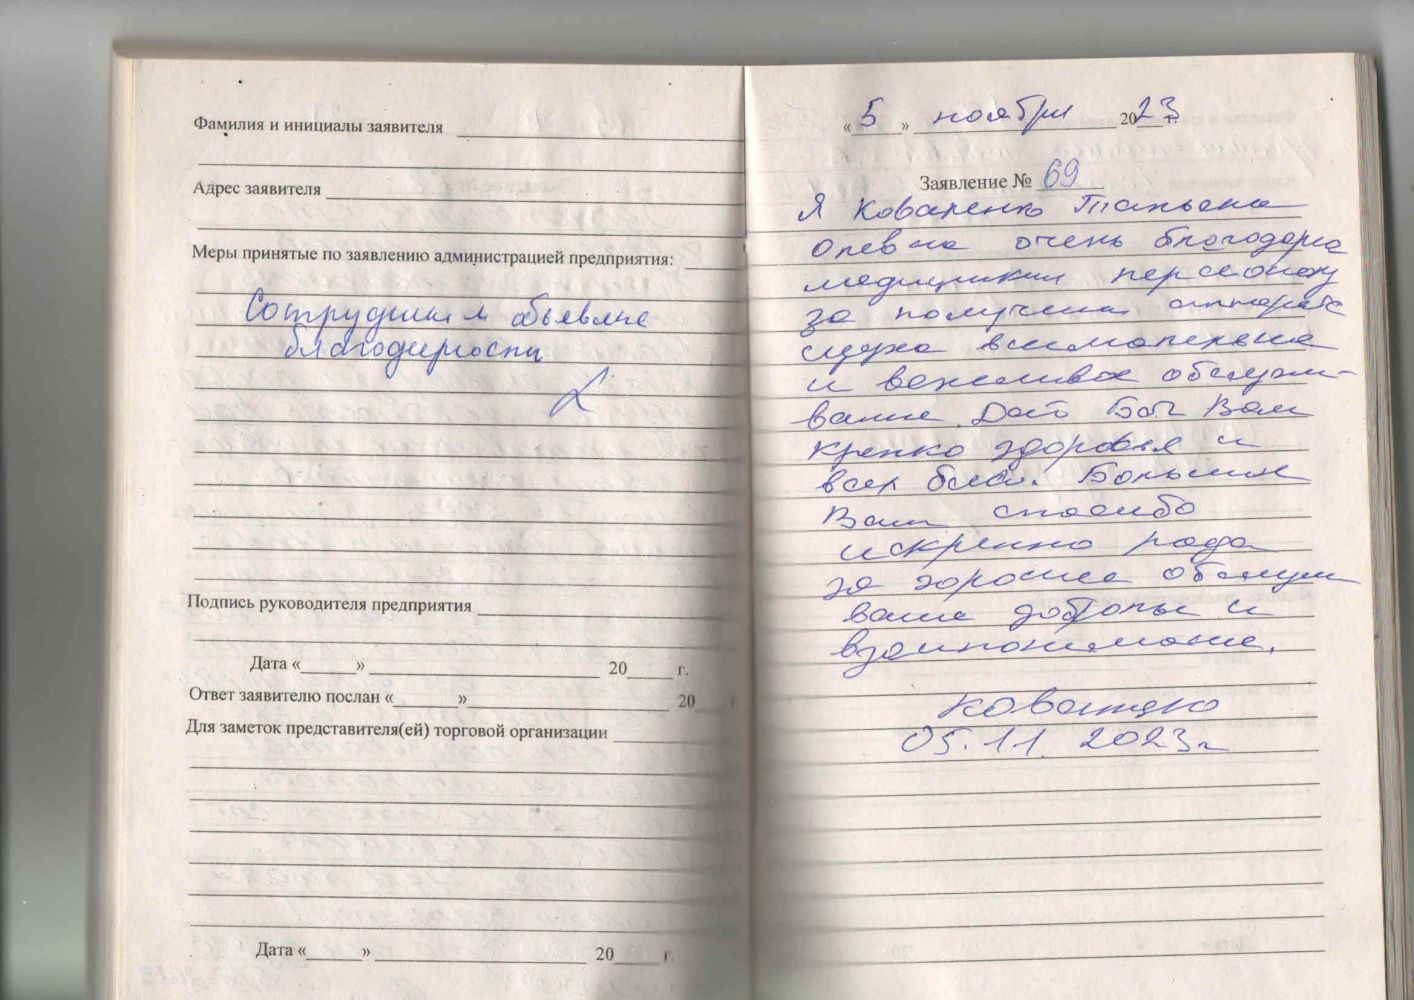 Фамилия и инициалы заявителя
Адрес заявителя
Меры принятые по заявлению администрацией предприятия:
Сотрудникам объявлена
благодарность
Подпись руководителя предприятия
Дата «      »                20    г.
Ответ заявителю послан «      »                20
Для заметок представителя(ей) торговой организации
Дата «      »                20    г.
« 5 » ноября 2023 г.
Заявление № 69
Я Коваренко Татьяна
очень благодарна
медицинкий персоналу
за получения аппарата
слуха внимательна
и вежливое обслужи-
вание. Дай Бог Вам
крепко здоровья и
всех благ. Большое
Вам спасибо
искренно рада
за хорошее обслужи
вание доброты и
взаимопонимание.
05.11. 2023г